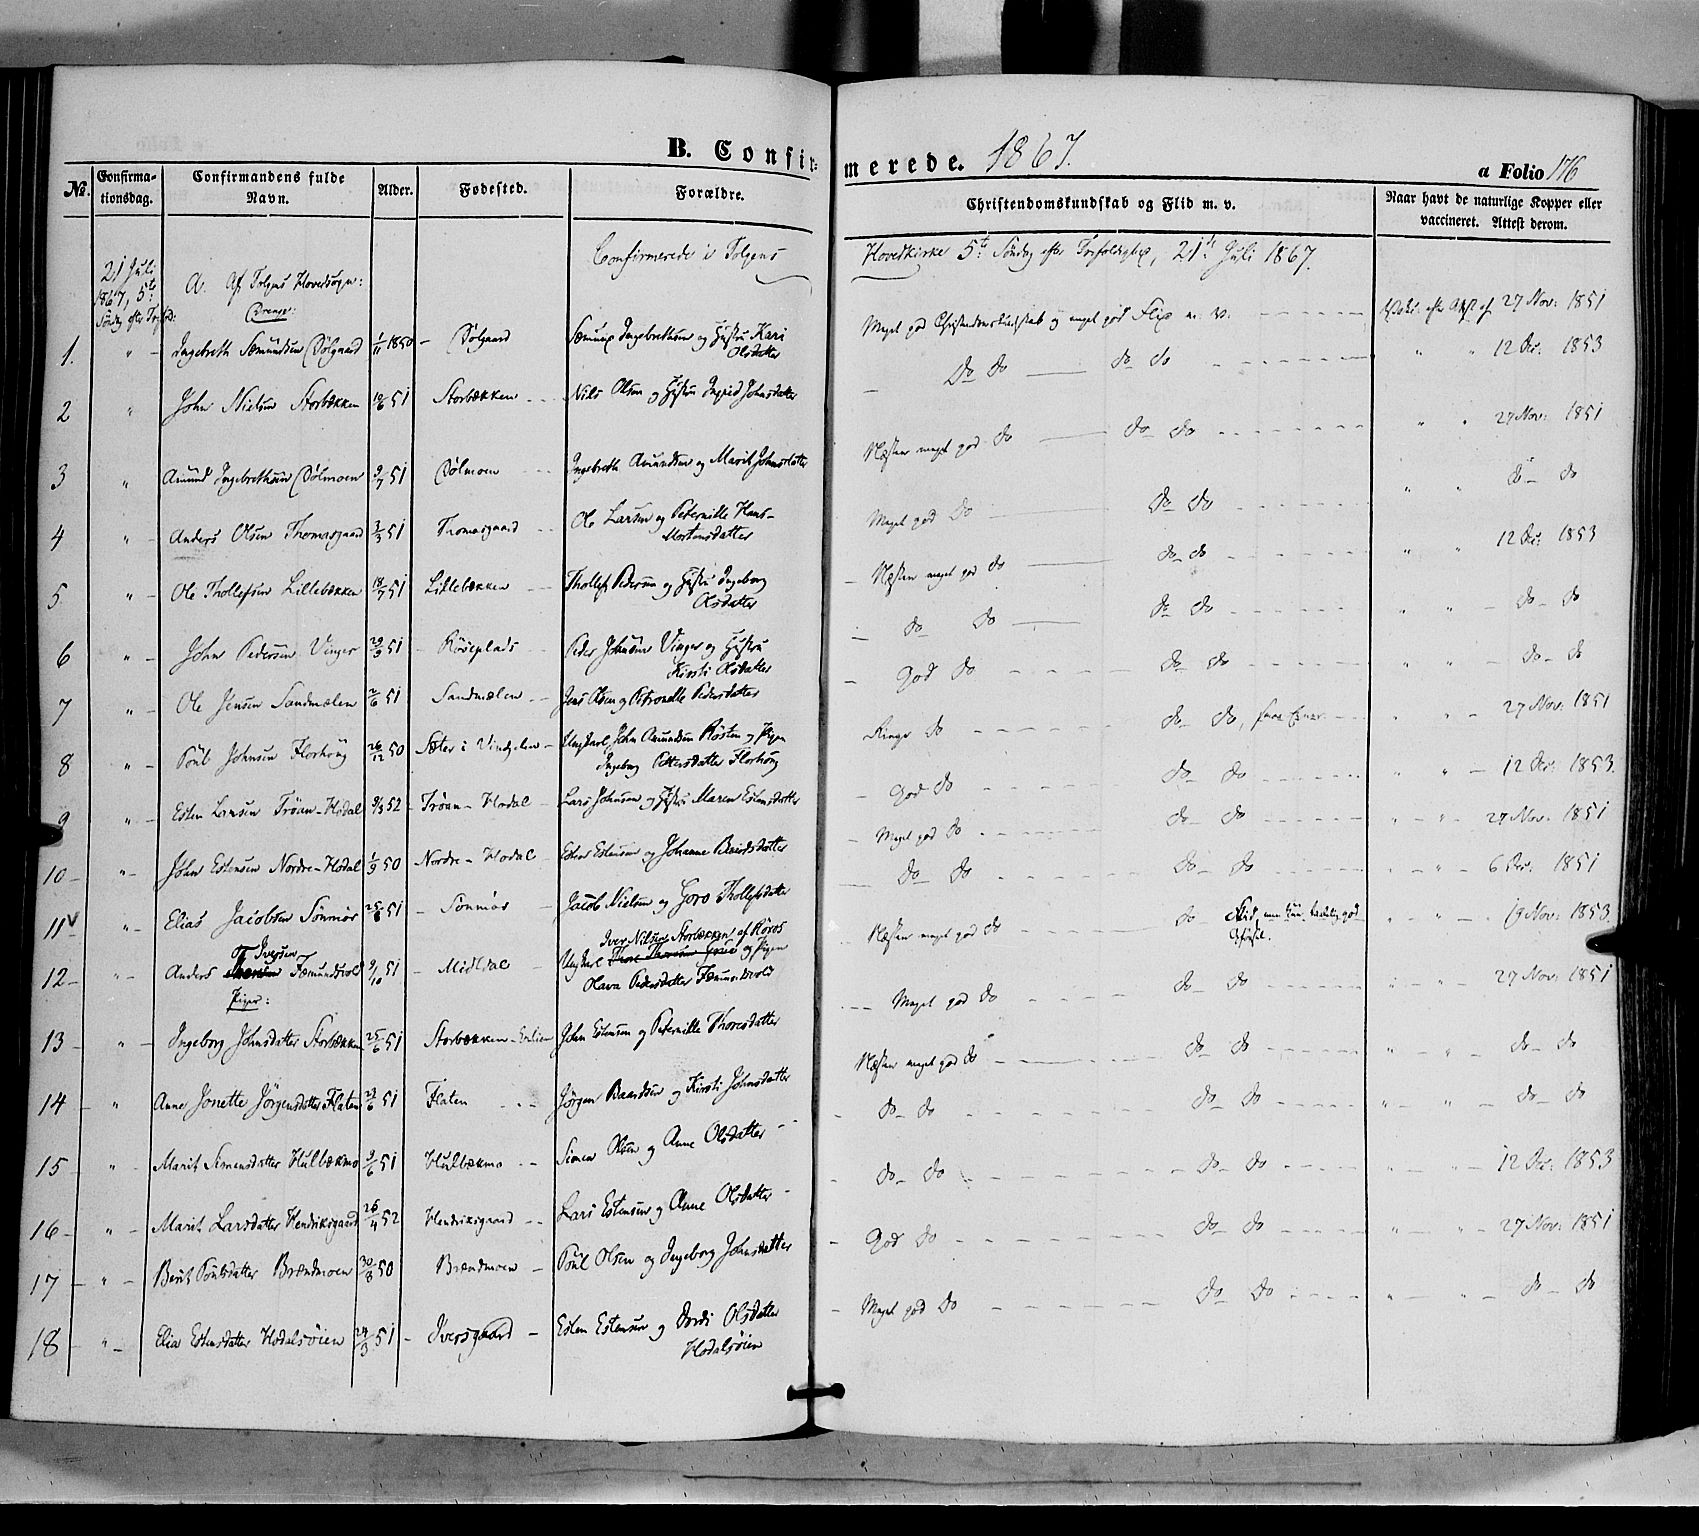 B. Confir-
merede. 1867.
a Folio 176
No.
Confirma-
tionsdag.
Confirmandens fulde
Navn.
Alder.
Fødested.
Forældre.
Christendomskundskab og Flid m. v.
Naar havt de naturlige Kopper eller
vaccineret. Attest derom.
Confirmerede i Tolgens Hovedkirke 5te Søndag efter Trefoldighed, 21de Juli 1867.
21 Juli
1867, 5te
Søndag efter Trefold:
A. Af Tolgens Hovedsogn:
Drenge:
1. " Ingebreth Sæmundsen Dølgaard 1/11 1850 Dølgaard Sæmund Ingebrethsen og Hustru Kari
Olsdatter Meget god Christendomskundskab og meget god Flid m. v. Vakc. efter Attest af 27 Nov: 1851
2 " John Nielsen Storbækken 10/6 51 Storbækken Nils Olsen og Hustru Ingrid Johnsdatter Do do do do " " 12 Dec: 1853
3 " Amund Ingebrethsen Dølmoen 9/7 51 Dølmoen Ingebreth Amundsen og Marit Johnsdatter Næsten meget god do do do " " 27 Nov: 1851
4 " Anders Olsen Thomasgaard 3/3 51 Thomasgaard Ole Larsen og Peternille Hans-
Mortensdatter Meget god do do do " " do do
5 " Ole Thollefsen Lillebækken 18/7 51 Lillebækken Thollef Pedersen og Hustru Ingeborg
Olsdatter Næsten meget god do do do " " 12 Dec: 1853
6 " John Pedersen Vinger 29/9 51 Røseplads Peder Johnsen Vinger og Hustru
Kirsti Olsdatter do do do do " " do do
7 " Ole Jensen Sandmælen 2/6 51 Sandmælen Jens Olsen og Petronelle Pedersdatter God do do do " " do do
8 " Poul Johnsen Florhoug 26/12 50 Sæter i Vingelen Ungkarl John Amundsen Røsten og Pigen
Ingeborg Pettersdatter Florhoug Ringe do do do, " " 27 Nov: 1851
9 " Esten Larsen Trøan-Hodal 9/3 52 Trøan-Hodal Lars Johnsen og Hustru Maren Estensdatter God do do do " " 12 Dec: 1853.
10 " John Estensen Nordre-Hodal 1/9 50 Nordre-Hodal Esten Estensen og Johanne Baardsdatter Meget god do do do " " 27 Nov: 1851
11 v " Elias Jacobsen Sømmør 25/8 51 Sømmør Jacob Nielsen og Goro Thollefsdatter do do do do " " 6 Dec: 1851
12 " Iversen
Anders Thoresen Fæmundsvold 9/10 51 Midtdal Iver Nilsen Storbækken af Röros
Ungkarl og Pigen
Olava Pedersdatter Fæmundsvold Næsten meget god do do Flid, men kun taalelig god
Opførsel. " " 19 Nov: 1853
Piger:
13 " Ingeborg Johnsdatter Storbækken 25/6 51 Storbækken John Estensen og Peternille Thoresdatter Meget god do do do " " 27 Nov: 1851
14 " Anne Jonette Jörgensdatter Flaten 23/6 51 Flaten Jörgen Baardsen og Kirsti Johnsdatter Næsten meget god do do do " " do do
15 " Marit Simensdatter Hulbækmo 9/6 51 Hulbækmo Simen Olsen og Anne Olsdatter do do do do " " do do
16 " Marit Larsdatter Hendriksgaard 26/4 52 Hendriksgaard Lars Estensen og Anne Olsdatter do do do do " " 12 Dec: 1853
17 " Berit Poulsdatter Brændmoen 30/8 50 Brændmoen Poul Olsen og Ingeborg Johnsdatter God do do do " " 27 Nov: 1851
18 " Elia Estensdatter Hodalsøien 24/3 51 Iversgaard Esten Estensen og Dordi Olsdatter
Hodalsøien Meget god do do do " " do do